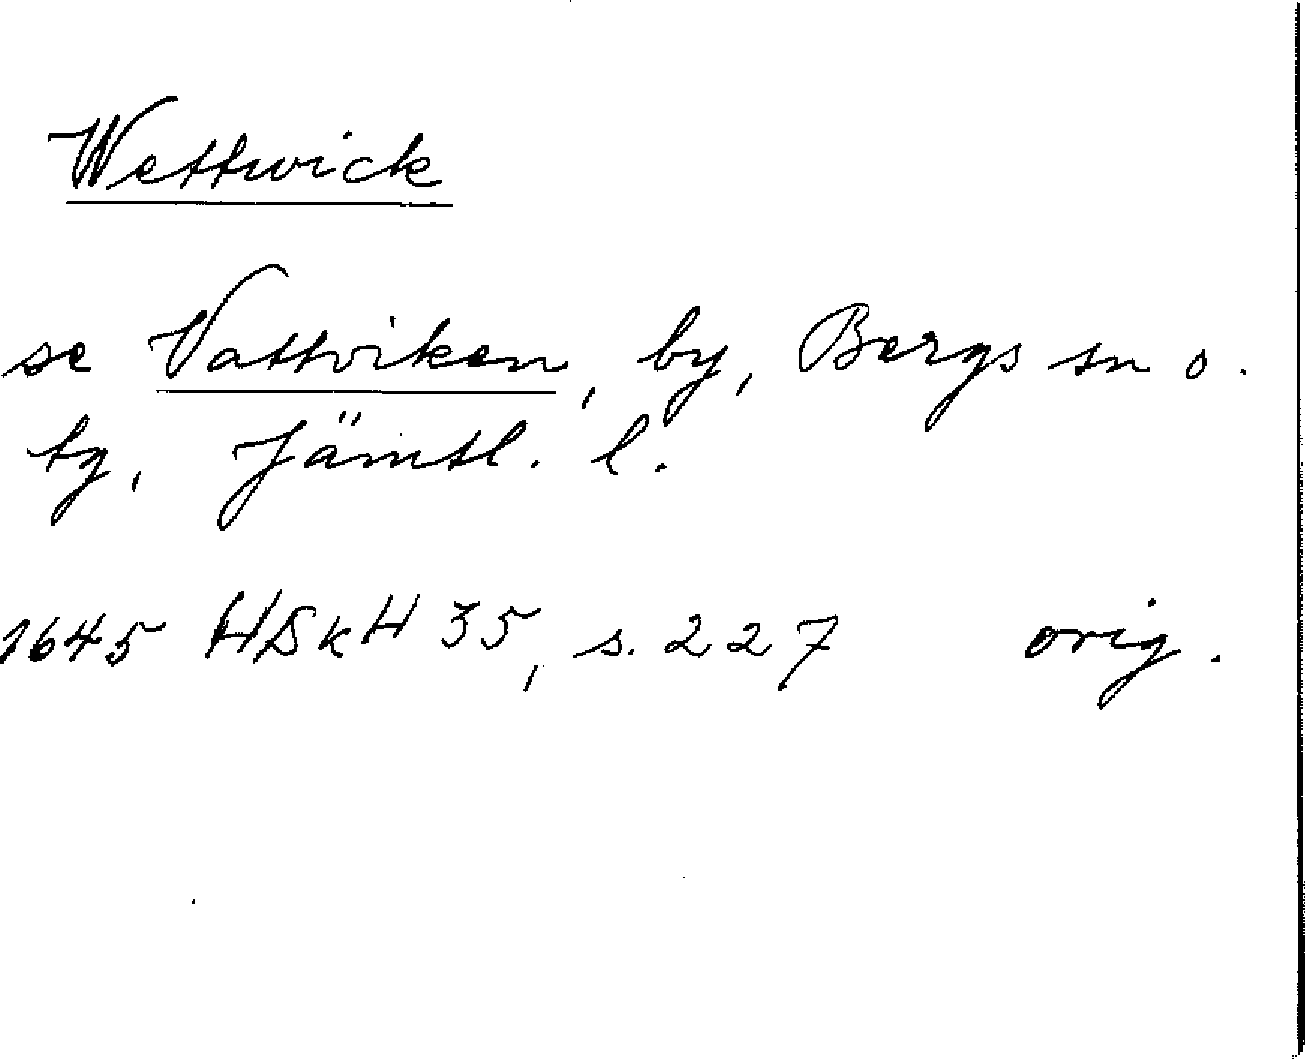 Wettwick
se Vattviken, by, Bergs sn o.
tg, Jämtl. l.
1645 HSkH 35, s. 227 orig.